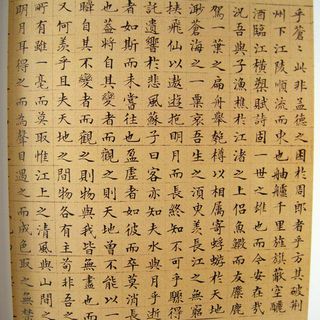 乎蒼〻此非孟德之困於周郎者乎方其破荊
州下江陵順流而東也舳艫千里旌旗蔽空釃
酒臨江橫槊賦詩固一世之雄也而今安在哉
況吾與子漁樵於江渚之上侶魚蝦而友麋鹿
駕一葉之扁舟舉匏樽以相屬寄蜉蝣於天地
渺滄海之一粟哀吾生之須臾羨長江之無窮
挾飛仙以遨遊抱明月而長終知不可乎驟得
託遺響於悲風蘇子曰客亦知夫水與月乎逝
者如斯而未嘗往也盈虛者如彼而卒莫消長
也蓋將自其變者而觀之則天地曾不能以一
瞬自其不變者而觀之則物與我皆無盡也而
又何羨乎且夫天地之間物各有主苟非吾之
所有雖一毫而莫取惟江上之清風與山間之
明月耳得之而為聲目遇之而成色取之無禁